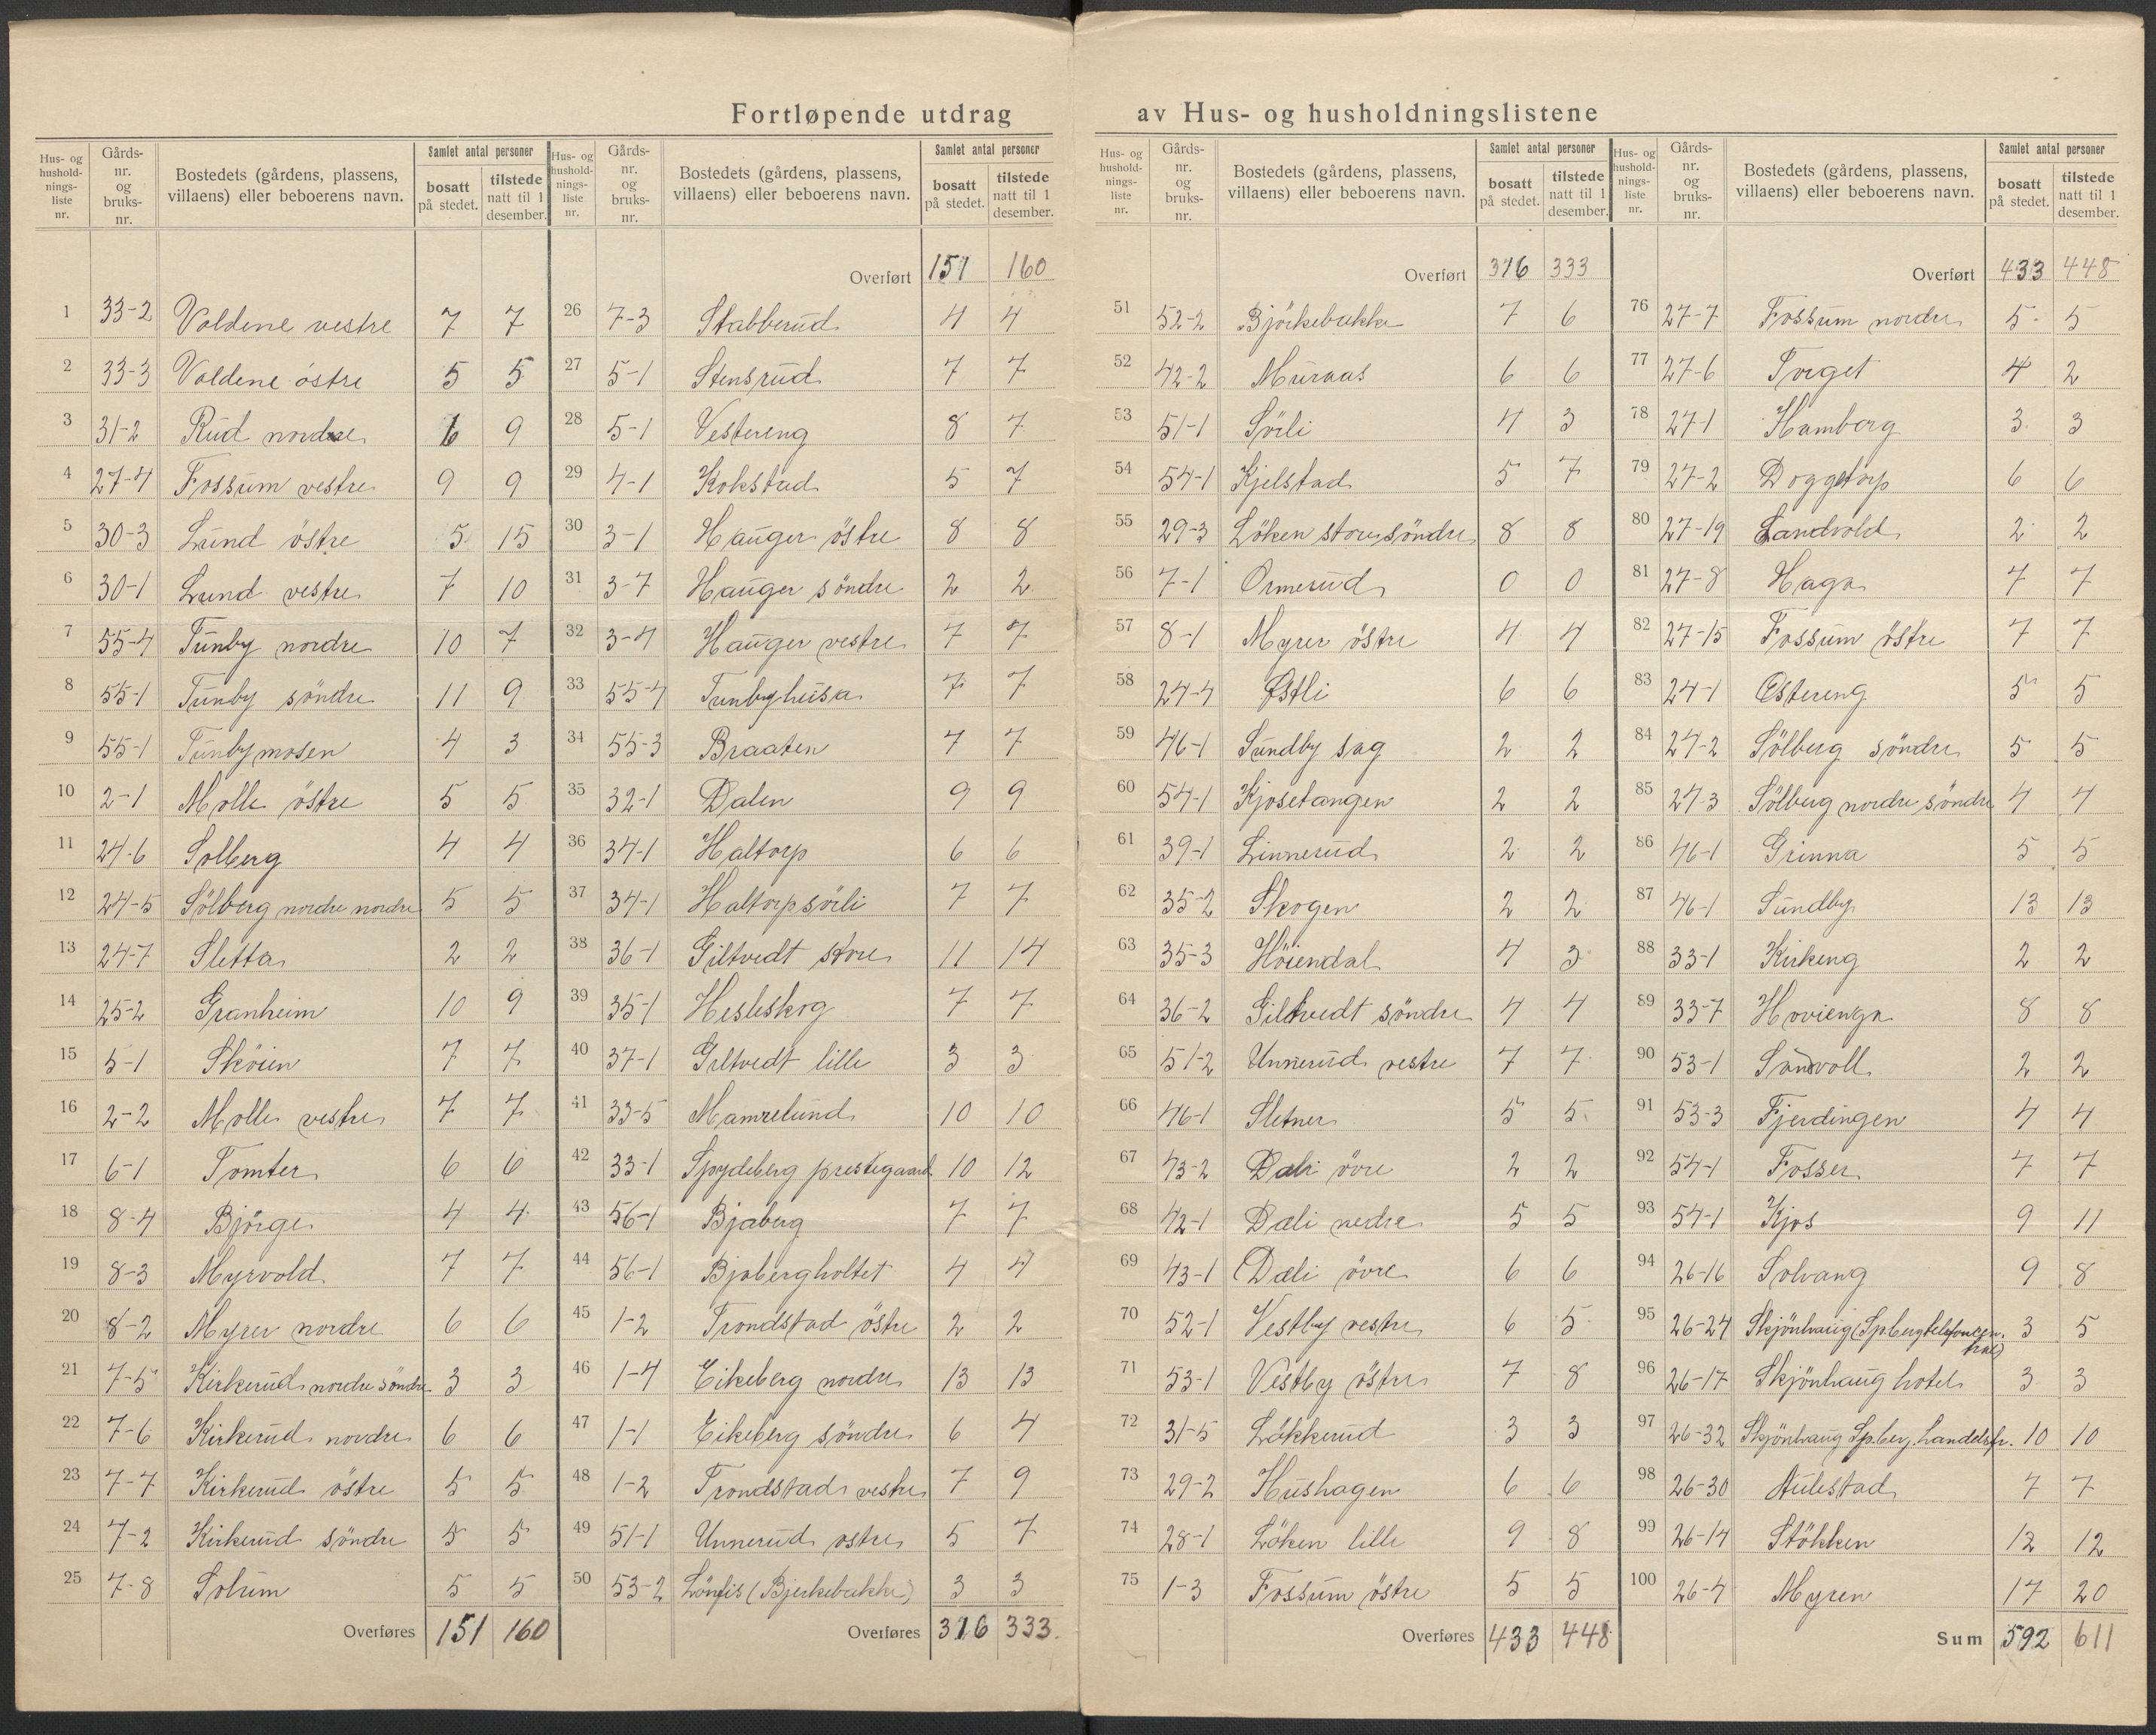 Fortløpende utdrag av Hus- og husholdningslistene
Hus- og husholdningsliste nr. | Gårds-nr. og bruks-nr. | Bostedets (gårdens, plassens, villaens) eller beboerens navn. | Samlet antal personer | bosatt på stedet. | tilstede natt til 1 desember.
1 33-2 Voldene vestre 7 7
2 33-3 Voldene östre 5 5
3 31-2 Rud nordre 6 9
4 27-4 Fossum vestre 9 9
5 30-3 Lund östre 5 15
6 30-1 Lund vestre 7 10
7 55-4 Tunby nordre 10 7
8 55-1 Tunby söndre 11 9
9 55-1 Tunbymosen 4 3
10 2-1 Molle östre 5 5
11 24-6 Solberg 4 4
12 24-5 Sölberg nordre nordre 5 5
13 24-7 Sletta 2 2
14 25-2 Granheim 10 9
15 5-1 Sköien 7 7
16 2-2 Molle vestre 7 7
17 6-1 Tomter 6 6
18 8-4 Bjørge 4 4
19 8-3 Myrvold 7 7
20 8-2 Myrer nordre 6 6
21 7-5 Kirkerud nordre söndre 3 3
22 7-6 Kirkerud nordre 6 6
23 7-7 Kirkerud östre 5 5
24 7-2 Kirkerud söndre 5 5
25 7-8 Solum 5 5
Overføres 151 160
Hus- og husholdningsliste nr. | Gårds-nr. og bruks-nr. | Bostedets (gårdens, plassens, villaens) eller beboerens navn. | Samlet antal personer | bosatt på stedet. | tilstede natt til 1 desember.
Overført 151 160
26 7-3 Stabberud 4 4
27 5-1 Stensrud 7 7
28 5-1 Vestereng 8 7
29 4-1 Kokstad 5 7
30 3-1 Hauger östre 8 8
31 3-7 Hauger söndre 2 2
32 3-4 Hauger vestre 7 7
33 55-4 Tunbyhusa 7 7
34 55-3 Braaten 7 7
35 32-1 Dalen 9 9
36 34-1 Haltorp 6 6
37 34-1 Haltorpsörli 7 7
38 36-1 Giltvedt store 11 14
39 35-1 Hesleskog 7 7
40 37-1 Giltvedt lille 3 3
41 33-5 Mamrelund 10 10
42 33-1 Spydeberg prestegaard 10 12
43 56-1 Bjaberg 7 7
44 56-1 Bjabergholtet 4 4
45 1-2 Trondstad östre 2 2
46 1-4 Eikeberg nordre 13 13
47 1-1 Eikeberg söndre 6 4
48 1-2 Trondstad vestre 7 9
49 51-1 Unnerud ostre 5 7
50 53-2 (Bjerkebakke) 3 3
Overføres 316 333.
Hus- og husholdningsliste nr. | Gårds-nr. og bruks-nr. | Bostedets (gårdens, plassens, villaens) eller beboerens navn. | Samlet antal personer | bosatt på stedet. | tilstede natt til 1 desember.
Overført 316 333
51 52-2 Björkebakke 7 6
52 42-2 Muraas 6 6
53 51-1 Sörli 4 3
54 54-1 Kjelstad 5 7
55 29-3 Löken store söndre 8 8
56 7-1 Ormerud 0 0
57 8-1 Myrer östre 4 4
58 24-4 Østli 6 6
59 46-1 Sundby sag 2 2
60 54-1 Kjosetangen 2 2
61 39-1 Linnerud 2 2
62 35-2 Skogen 2 2
63 35-3 Höiendal 4 3
64 36-2 Giltvedt söndre 4 4
65 51-2 Unnerud vestre 7 7
66 46-1 Sletner 5 5
67 43-2 Dæli övre 2 2
68 42-1 Dæli nedre 5 5
69 43-1 Dæli övre 6 6
70 52-1 Vestby vestre 6 5
71 53-1 Vestby östre 7 8
72 31-5 Lökkerud 3 3
73 29-2 Hushagen 6 6
74 28-1 Löken lille 9 8
75 1-3 Fossum östre 5 5
Overføres 433 448
Hus- og husholdningsliste nr. | Gårds-nr. og bruks-nr. | Bostedets (gårdens, plassens, villaens) eller beboerens navn. | Samlet antal personer | bosatt på stedet. | tilstede natt til 1 desember.
Overført 433 448
76 27-7 Fossum nordre 5 5
77 27-6 Torget 4 2
78 27-1 Hamborg 3 3
79 27-2 Doggetorp 6 6
80 27-19 Sandvold 2 2
81 27-8 Haga 7 7
82 27-15 Fossum östre 7 7
83 24-1 Østereng 5 5
84 24-2 Sölberg söndre 5 5
85 24-3 Sölberg nordre söndre 4 4
86 46-1 Grinna 5 5
87 46-1 Sundby 13 13
88 33-1 Kirkeng 2 2
89 33-7 Hovienga 8 8
90 53-1 Sandvoll 2 2
91 53-3 Fjerdingen 4 4
92 54-1 Fosser 7 7
93 54-1 Kjos 9 11
94 26-16 Solvang 9 8
95 26-24 Skjönhaug (Spbergtelefoncentral) 3 5
96 26-17 Skjönhaug hotel 3 3
97 26-32 Skjönhaug Sp.berg. handelsfr. 10 10
98 26-30 Aulestad 7 7
99 26-14 Stökken 12 12
100 26-4 Myren 17 20
Sum 592 611